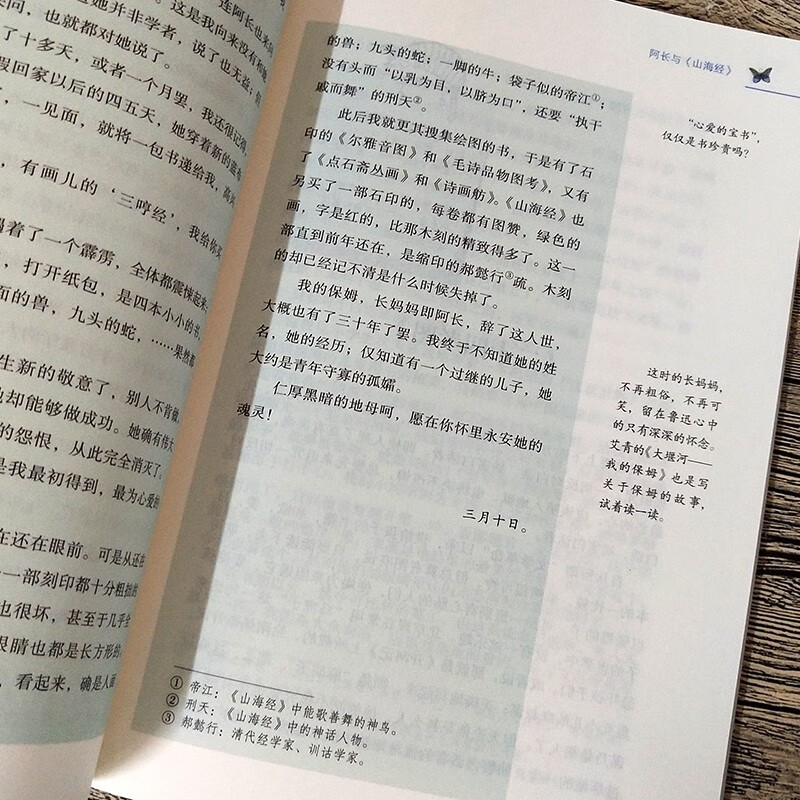 连阿长也来问
问，也就都对她说了。
了十多天，或者一个月罢，我还很记得，
假回家以后的四五天，她穿着新的蓝布
，一见面，就将一包书递给我，高兴
，有画儿的‘三哼经’，我给你买
遇着了一个霹雳，全体都震悚起来；
，打开纸包，是四本小小的书，
面的兽，九头的蛇，……果然都
生新的敬意了，别人不肯做，
她却能够做成功。她确有伟大
的怨恨，从此完全消灭了。
是我最初得到，最为心爱的
在还在眼前。可是从还在
一部刻印都十分粗拙的
也很坏，甚至于几乎全
眼睛也都是长方形的。
，看起来，确是人面
阿长与《山海经》
的兽；九头的蛇；一脚的牛；袋子似的帝江①；
没有头而“以乳为目，以脐为口”，还要“执干
戚而舞”的刑天②。
此后我就更其搜集绘图的书，于是有了石
印的《尔雅音图》和《毛诗品物图考》，又有
了《点石斋丛画》和《诗画舫》。《山海经》也
另买了一部石印的，每卷都有图赞，绿色的
画，字是红的，比那木刻的精致得多了。这一
部直到前年还在，是缩印的郝懿行③疏。木刻
的却已经记不清是什么时候失掉了。
我的保姆，长妈妈即阿长，辞了这人世，
大概也有了三十年了罢。我终于不知道她的姓
名，她的经历；仅知道有一个过继的儿子，她
大约是青年守寡的孤孀。
仁厚黑暗的地母呵，愿在你怀里永安她的
魂灵！
三月十日。
“心爱的宝书”，
仅仅是书珍贵吗？
这时的长妈妈，
不再粗俗，不再可
笑，留在鲁迅心中
的只有深深的怀念。
艾青的《大堰河——
我的保姆》也是写
关于保姆的故事，
试着读一读。
① 帝江：《山海经》中能歌善舞的神鸟。
② 刑天：《山海经》中的神话人物。
③ 郝懿行：清代经学家、训诂学家。